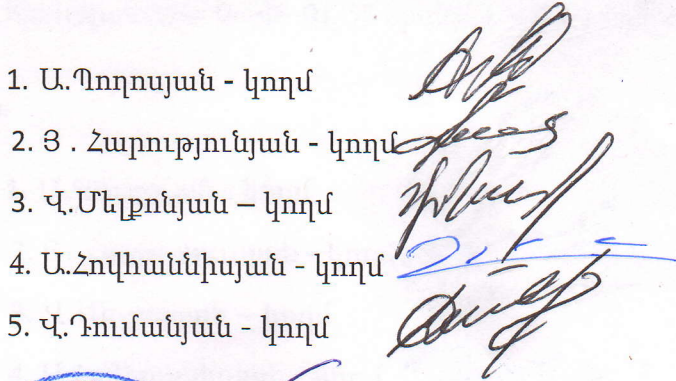 1. Ա.Պողոսյան - կողմ
2. Յ . Հարությունյան - կողմ
3. Վ.Մելքոնյան – կողմ
4. Ա.Հովհաննիսյան - կողմ
5. Վ.Դումանյան - կողմ